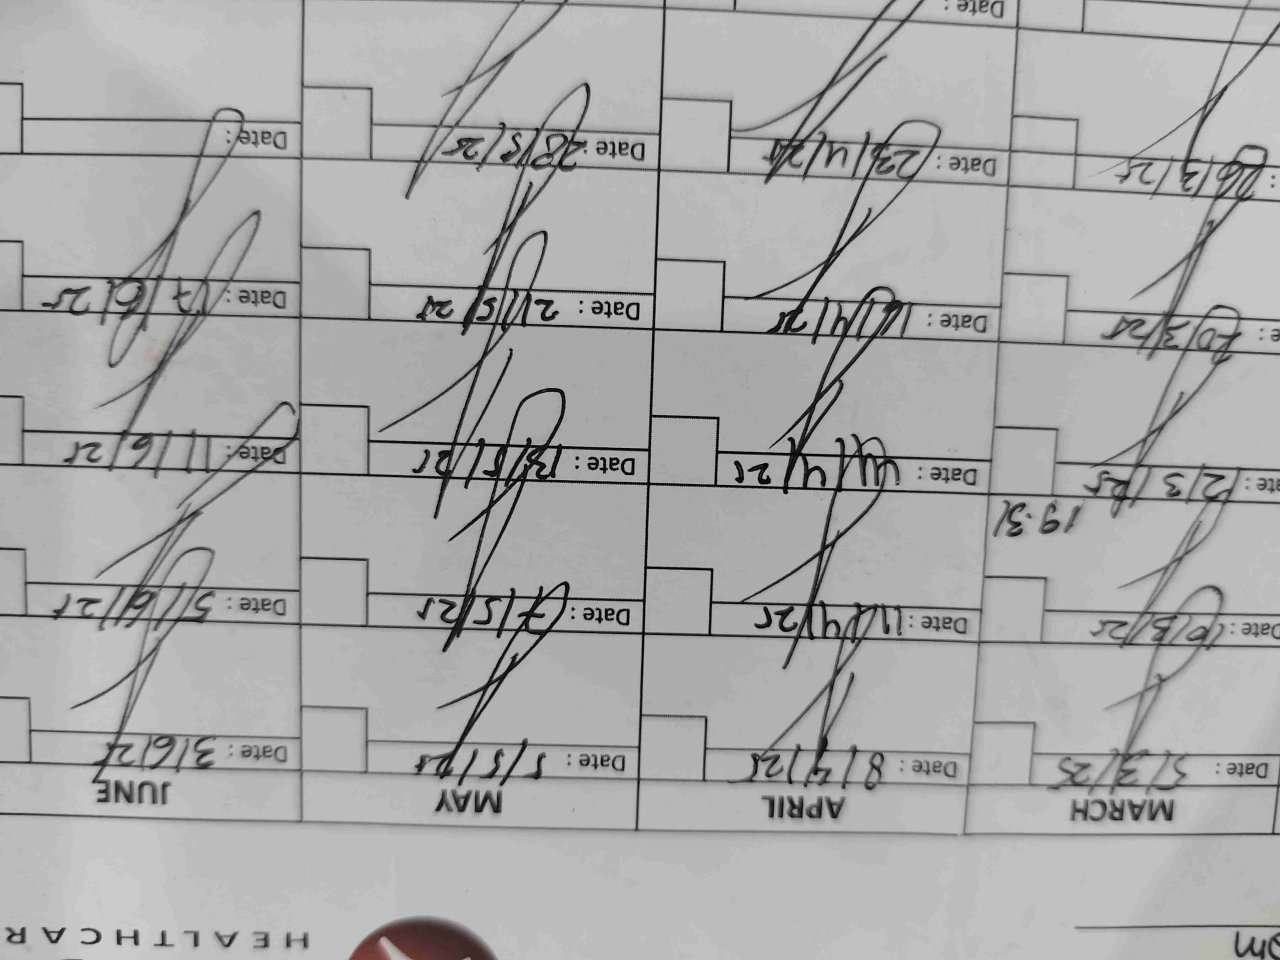 HEALTHCAR
MARCH APRIL MAY JUNE
Date: 5/3/25 Date: 8/4/25 Date: 5/5/25 Date: 3/6/25
Date: Date: 11/4/25 Date: 7/5/25 Date: 5/6/25
Date: 12/3/25 Date: Date: 13/5/25 Date: 11/6/25
20/3/25 Date: 16/4/25 Date: 21/5/25 Date: 17/6/25
26/3/25 Date: 23/4/25 Date: 28/5/25 Date:
Date: